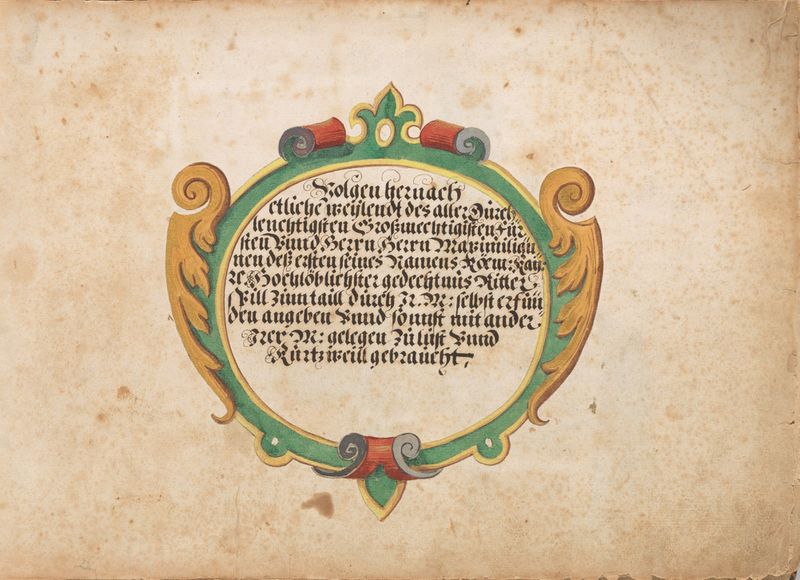 Volgen hernach
etliche weylendt des aller Durch
leuchtigsten Großmechtigisten Für
sten Vnnd Herrn Herrn Maximilia
nen deß ersten seines Namens Röem: Kay:
re Hochlöblichster gedechtnus Ritter
Spill Zum tail durch Ir. M: selbst erfun
den angeben Vnnd sonnst mit ander
Irer M: gelegen Zu lust Vnnd
Kurtzweill gebraucht.